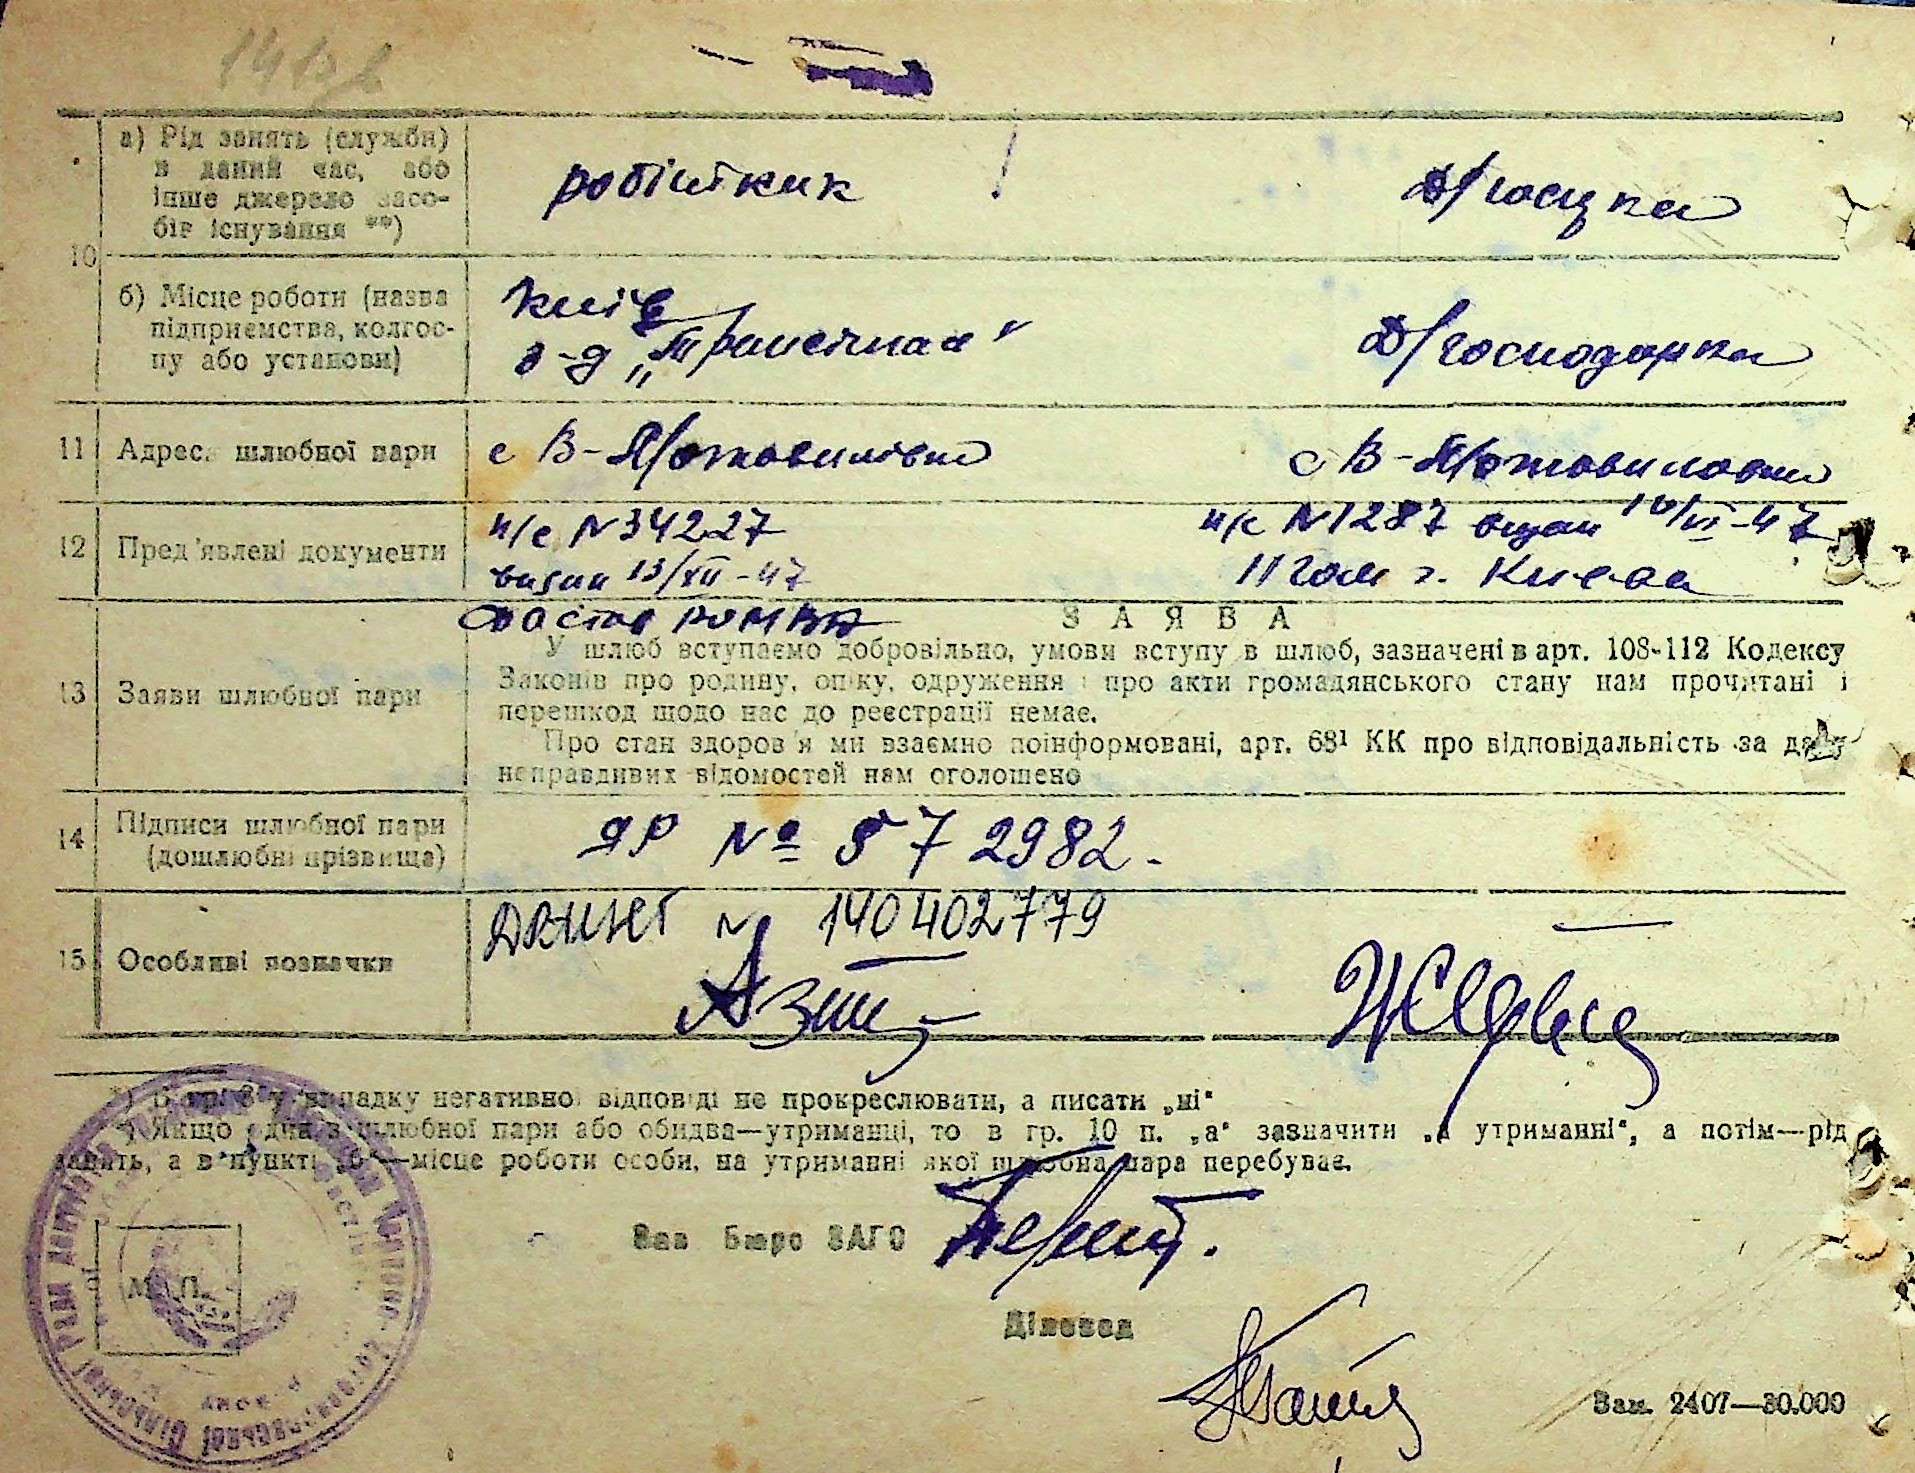 а) Рід занять (служби) в даний час, або інше джерело засобів існування **)
робітник
Д/госпка
10
б) Місце роботи (назва підприємства, колгоспу або установи)
Київ
з-д „Транссігнал"
Д/господарка
11 Адреса шлюбної пари
с В-
с В-
12 Пред'явлені документи
п/с N 34227
видан 13/XII-47
Фастов
п/с N 1287 видан 16/VI-47
11 г. Киева
З А Я В А
13 Заяви шлюбної пари
У шлюб вступаємо добровільно, умови вступу в шлюб, зазначені в арт. 108-112 Кодексу
Законів про родину, опіку, одруження і про акти громадянського стану нам прочитані і
перешкод щодо нас до реєстрації немає.
Про стан здоров'я ми взаємно поінформовані, арт. 68¹ КК про відповідальність за дачу
неправдивих відомостей нам оголошено
14 Підписи шлюбної пари (дошлюбні прізвища)
ЯР № 572982.
15 Особливі позначки
N 140402779
*) В гр. 8 у випадку негативної відповіді не прокреслювати, а писати „ні"
**) Якщо одна з шлюбної пари або обидва—утриманці, то в гр. 10 п. „а" зазначити „на утриманні", а потім—рід
занять, а в пункті „б"—місце роботи особи, на утриманні якої шлюбна пара перебуває.
Зав Бюро ЗАГС
М. П.
Діловод
Зам. 2407—30.000